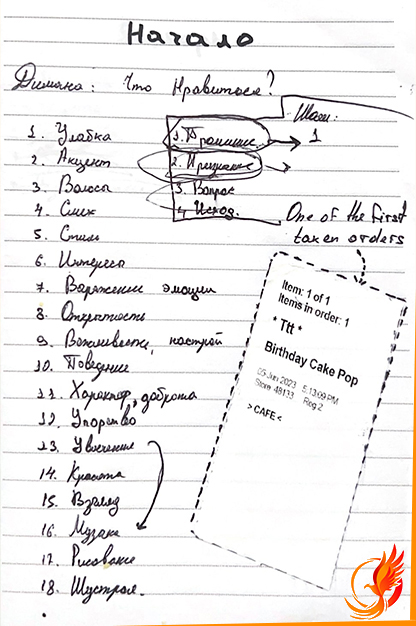 Начало
Димана: Что Нравиться?
Шаги:
1. Улабка
2. Акцент
3. Волосы
4. Смех
5. Стиль
6. Интересы
7. Выражение эмоции
8. Открытость
9. Вежливость, настрой
10. Поведение
11. Характер, доброта
12. Упорство
13. Увлечение
14. Красота
15. Взгляд
16. Музыка
17. Рисование
18. Шустрая.
1.
2. Признание
3. Вопрос
4. Исход.
1
One of the first
taken orders
Item: 1 of 1
Items in order: 1
* Ttt *
Birthday Cake Pop
05 Jun 2023 5:13:09 PM
Store 48133 Reg 2
> CAFE <